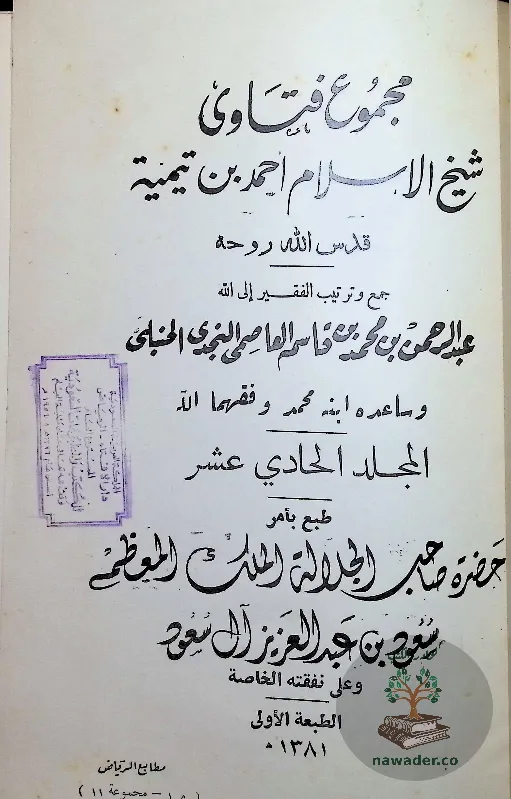 مجموع فتاوى
شيخ الإسلام أحمد بن تيمية
قدس الله روحه
جمع وترتيب الفقير إلى الله
عبد الرحمن بن محمد بن قاسم العاصمي النجدي الحنبلي
وساعده ابنه محمد وفقهما الله
المجلد الحادي عشر
طبع بأمر
حضرة صاحب الجلالة الملك المعظم
سعود بن عبد العزيز آل سعود
وعلى نفقته الخاصة
الطبعة الأولى
١٣٨١ ه
nawader.co
مطابع الرياض
مجموعة ١١ )